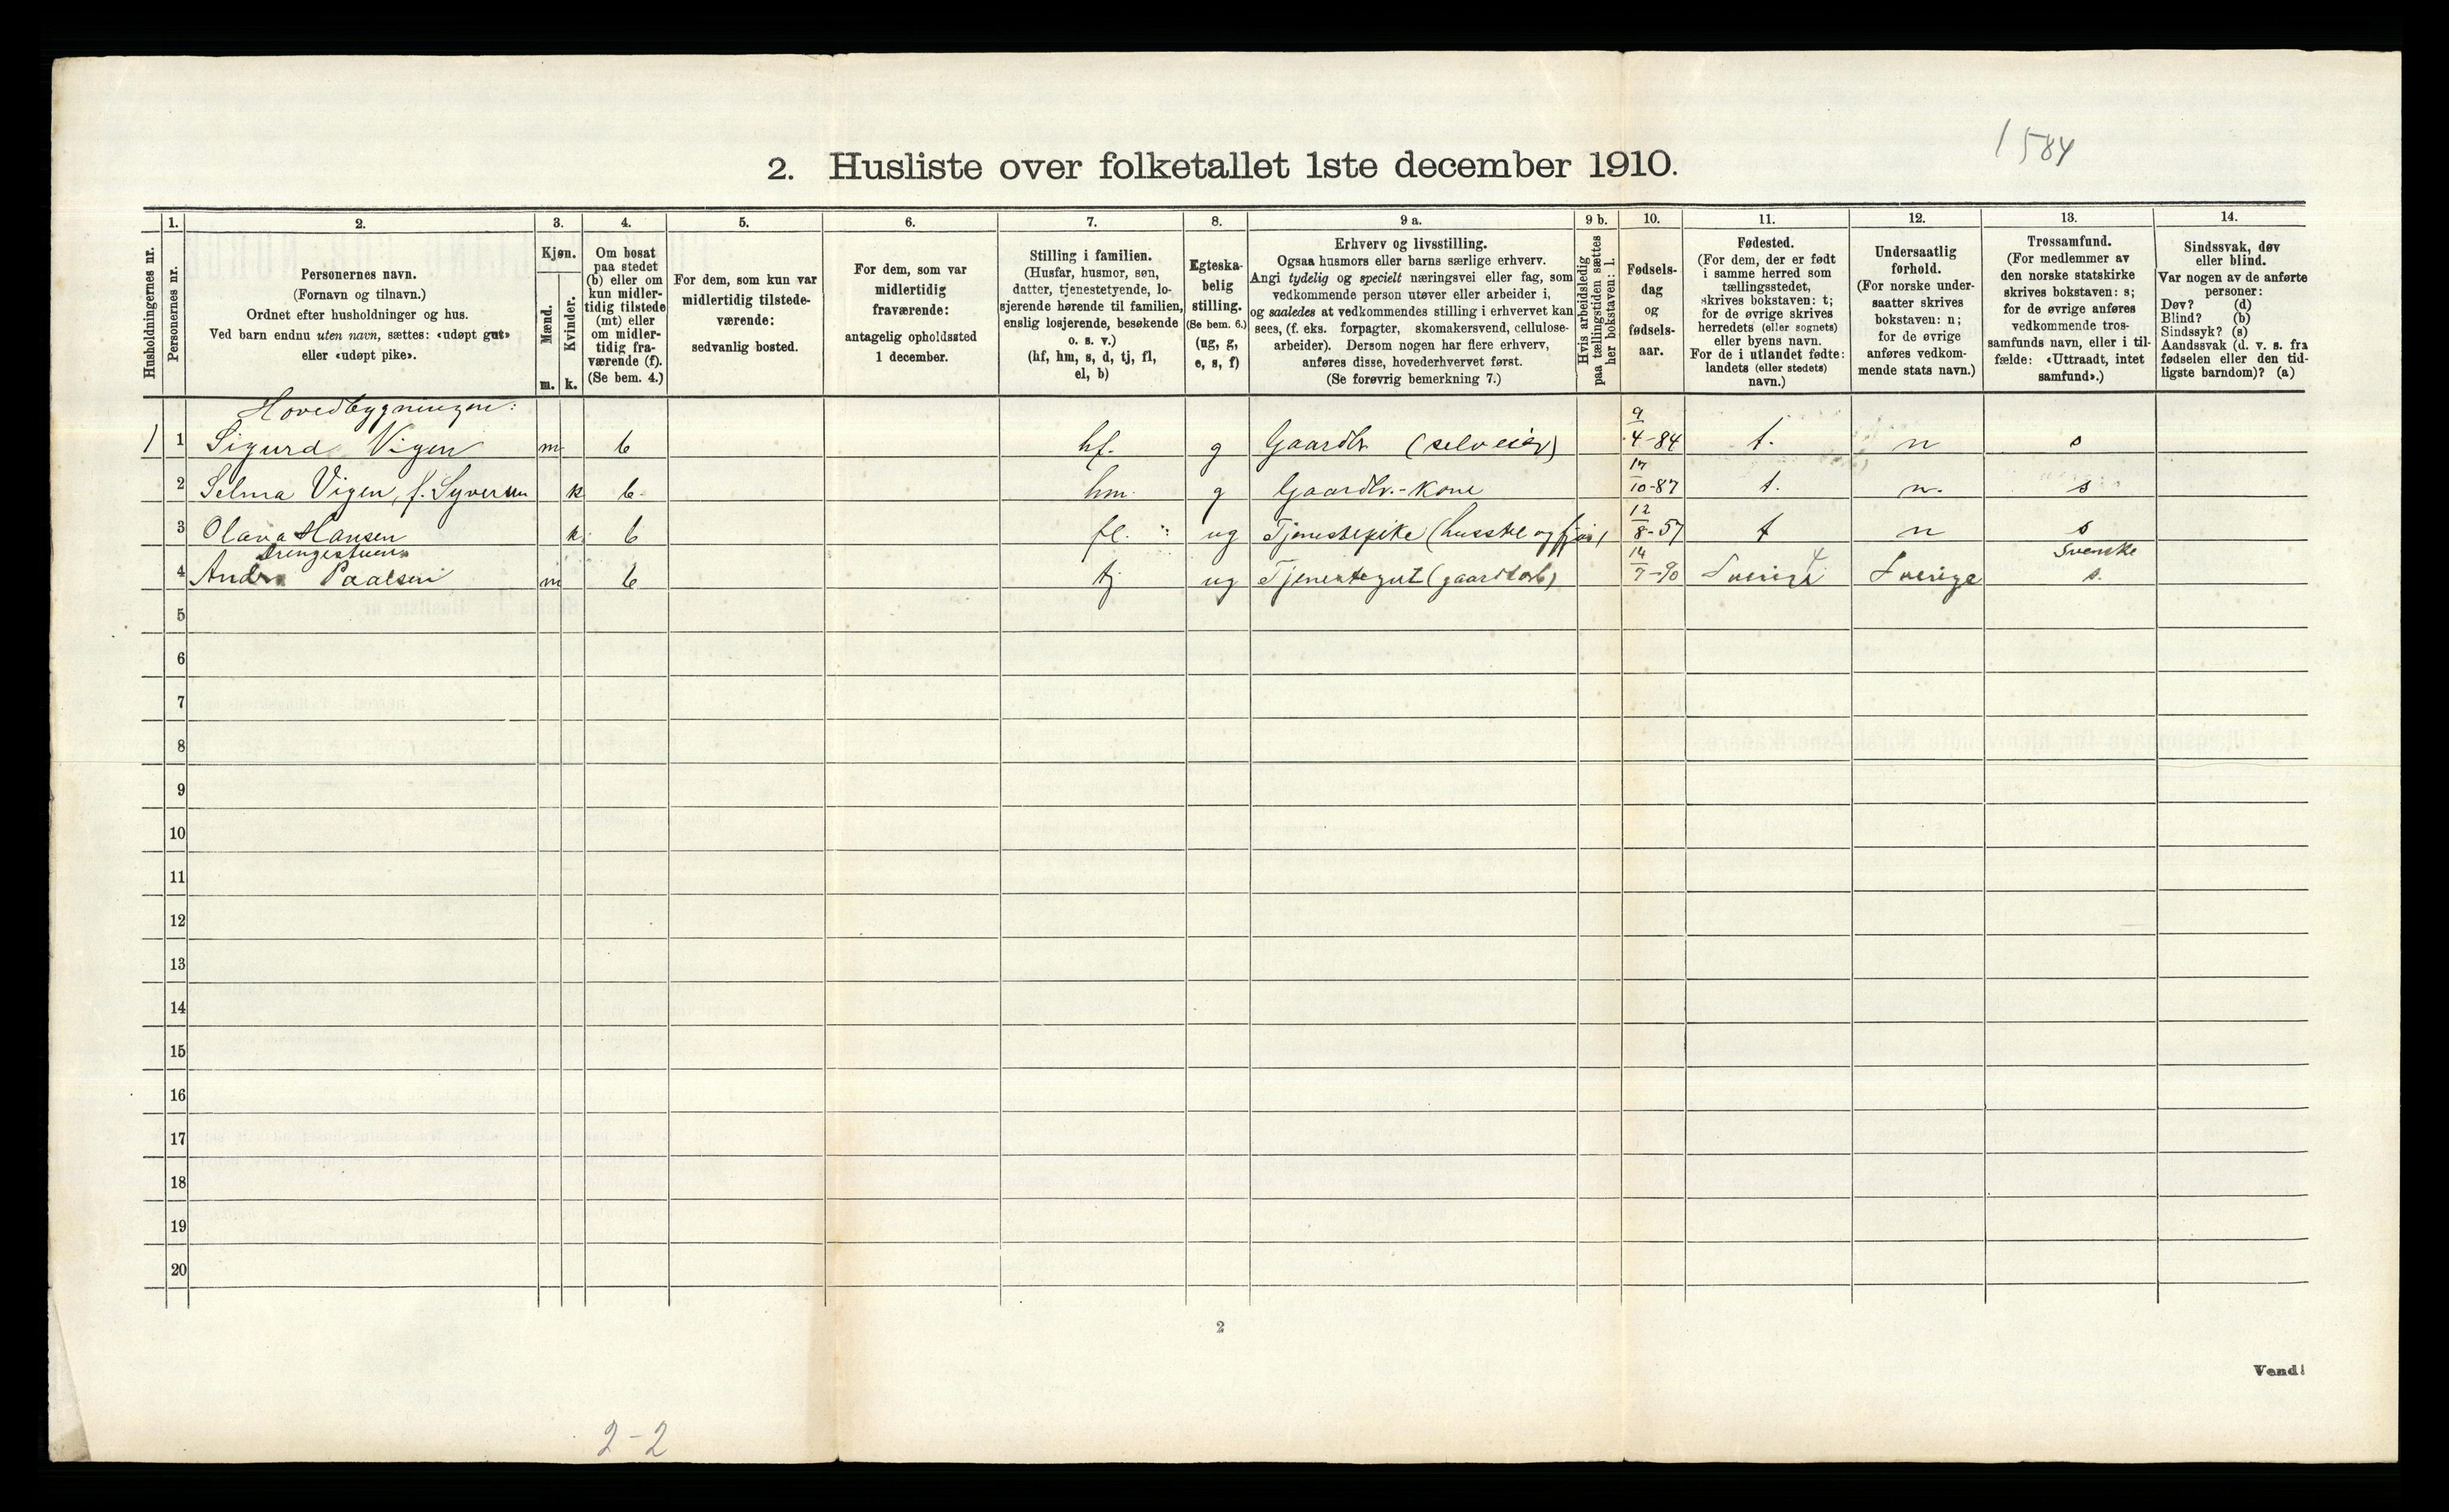 1584
2. Husliste over folketallet 1ste december 1910.
Husholdningernes nr.
1.
Personernes nr.
2.
Personernes navn.
(Fornavn og tilnavn.)
Ordnet efter husholdninger og hus.
Ved barn endnu uten navn, sættes: «udøpt gut»
eller «udøpt pike».
3.
Kjøn.
Mænd.
Kvinder.
m. k.
4.
Om bosat
paa stedet
(b) eller om
kun midler-
tidig tilstede
(mt) eller
om midler-
tidig fra-
værende (f).
(Se bem. 4.)
5.
For dem, som kun var
midlertidig tilstede-
værende:
sedvanlig bosted.
6.
For dem, som var
midlertidig
fraværende:
antagelig opholdssted
1 december.
7.
Stilling i familien.
(Husfar, husmor, søn,
datter, tjenestetyende, lo-
sjerende hørende til familien,
enslig losjerende, besøkende
o. s. v.)
(hf, hm, s, d, tj, fl,
el, b)
8.
Egteska-
belig
stilling.
(Se bem. 6.)
(ug, g,
e, s, f)
9 a.
Erhverv og livsstilling.
Ogsaa husmors eller barns særlige erhverv.
Angi tydelig og specielt næringsvei eller fag, som
vedkommende person utøver eller arbeider i,
og saaledes at vedkommendes stilling i erhvervet kan
sees, (f. eks. forpagter, skomakersvend, cellulose-
arbeider). Dersom nogen har flere erhverv,
anføres disse, hovederhvervet først.
(Se forøvrig bemerkning 7.)
9 b.
Hvis arbeidsledig
paa tællingstiden sættes
her bokstaven: l.
10.
Fødsels-
dag
og
fødsels-
aar.
11.
Fødested.
(For dem, der er født
i samme herred som
tællingsstedet,
skrives bokstaven: t;
for de øvrige skrives
herredets (eller sognets)
eller byens navn.
For de i utlandet fødte:
landets (eller stedets)
navn.)
12.
Undersaatlig
forhold.
(For norske under-
saatter skrives
bokstaven: n;
for de øvrige
anføres vedkom-
mende stats navn.)
13.
Trossamfund.
(For medlemmer av
den norske statskirke
skrives bokstaven: s;
for de øvrige anføres
vedkommende tros-
samfunds navn, eller i til-
fælde: «Uttraadt, intet
samfund».)
14.
Sindssvak, døv
eller blind.
Var nogen av de anførte
personer:
Døv? (d)
Blind? (b)
Sindssyk? (s)
Aandssvak (d. v. s. fra
fødselen eller den tid-
ligste barndom)? (a)
Hovedbygningen:
1 1 Sigurd Vigen m b hf. g Gaardbr. (selveier) 9/4-84 t. n s
2 Selma Vigen, f. Syversen k b. hm. g Gaardbr.-kone 17/10-87 t. n. s
3 Olava Hansen k. b fl. ug Tjenestepike (husstel og fjøs) 12/8-57 t n s
Drengestuen
4 Paalsen m b tj ug Tjenestegut (gaardsarb) 14/7-90 Sverige 4 Sverige Svenske s.
5
6
7
8
9
10
11
12
13
14
15
16
17
18
19
20
2
Vend!
2-2